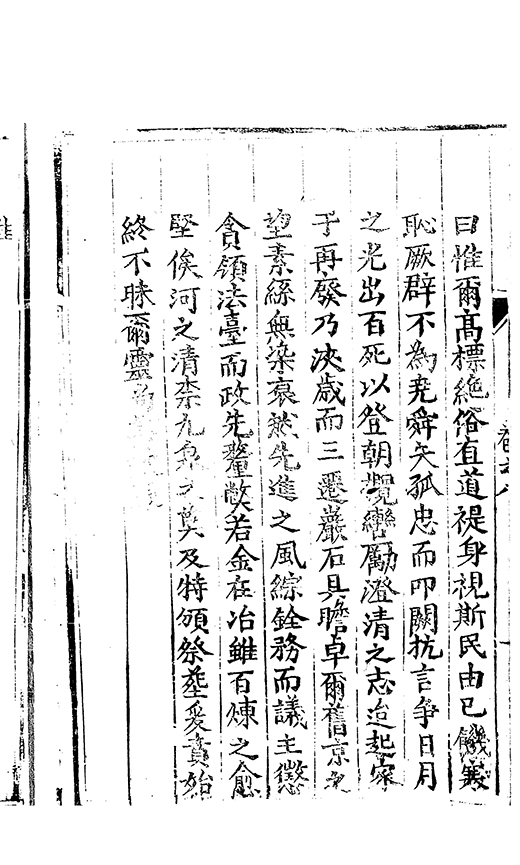 曰惟爾高標絶俗直道禔身視斯民由已饑寒
恥厥辟不為堯舜矢孤忠而叩闕抗言爭日月
之光出百死以登朝攬轡勵澄清之志迨起家
于再廢乃浹歲而三遷巖石具瞻卓爾舊京之
望素絲無染裒然先進之風綜銓務而議主懲
貪領法臺而政先釐弊若金在冶雖百煉之愈
堅俟河之清柰九及特頒祭葬爰賁始
終不昧爾靈尚